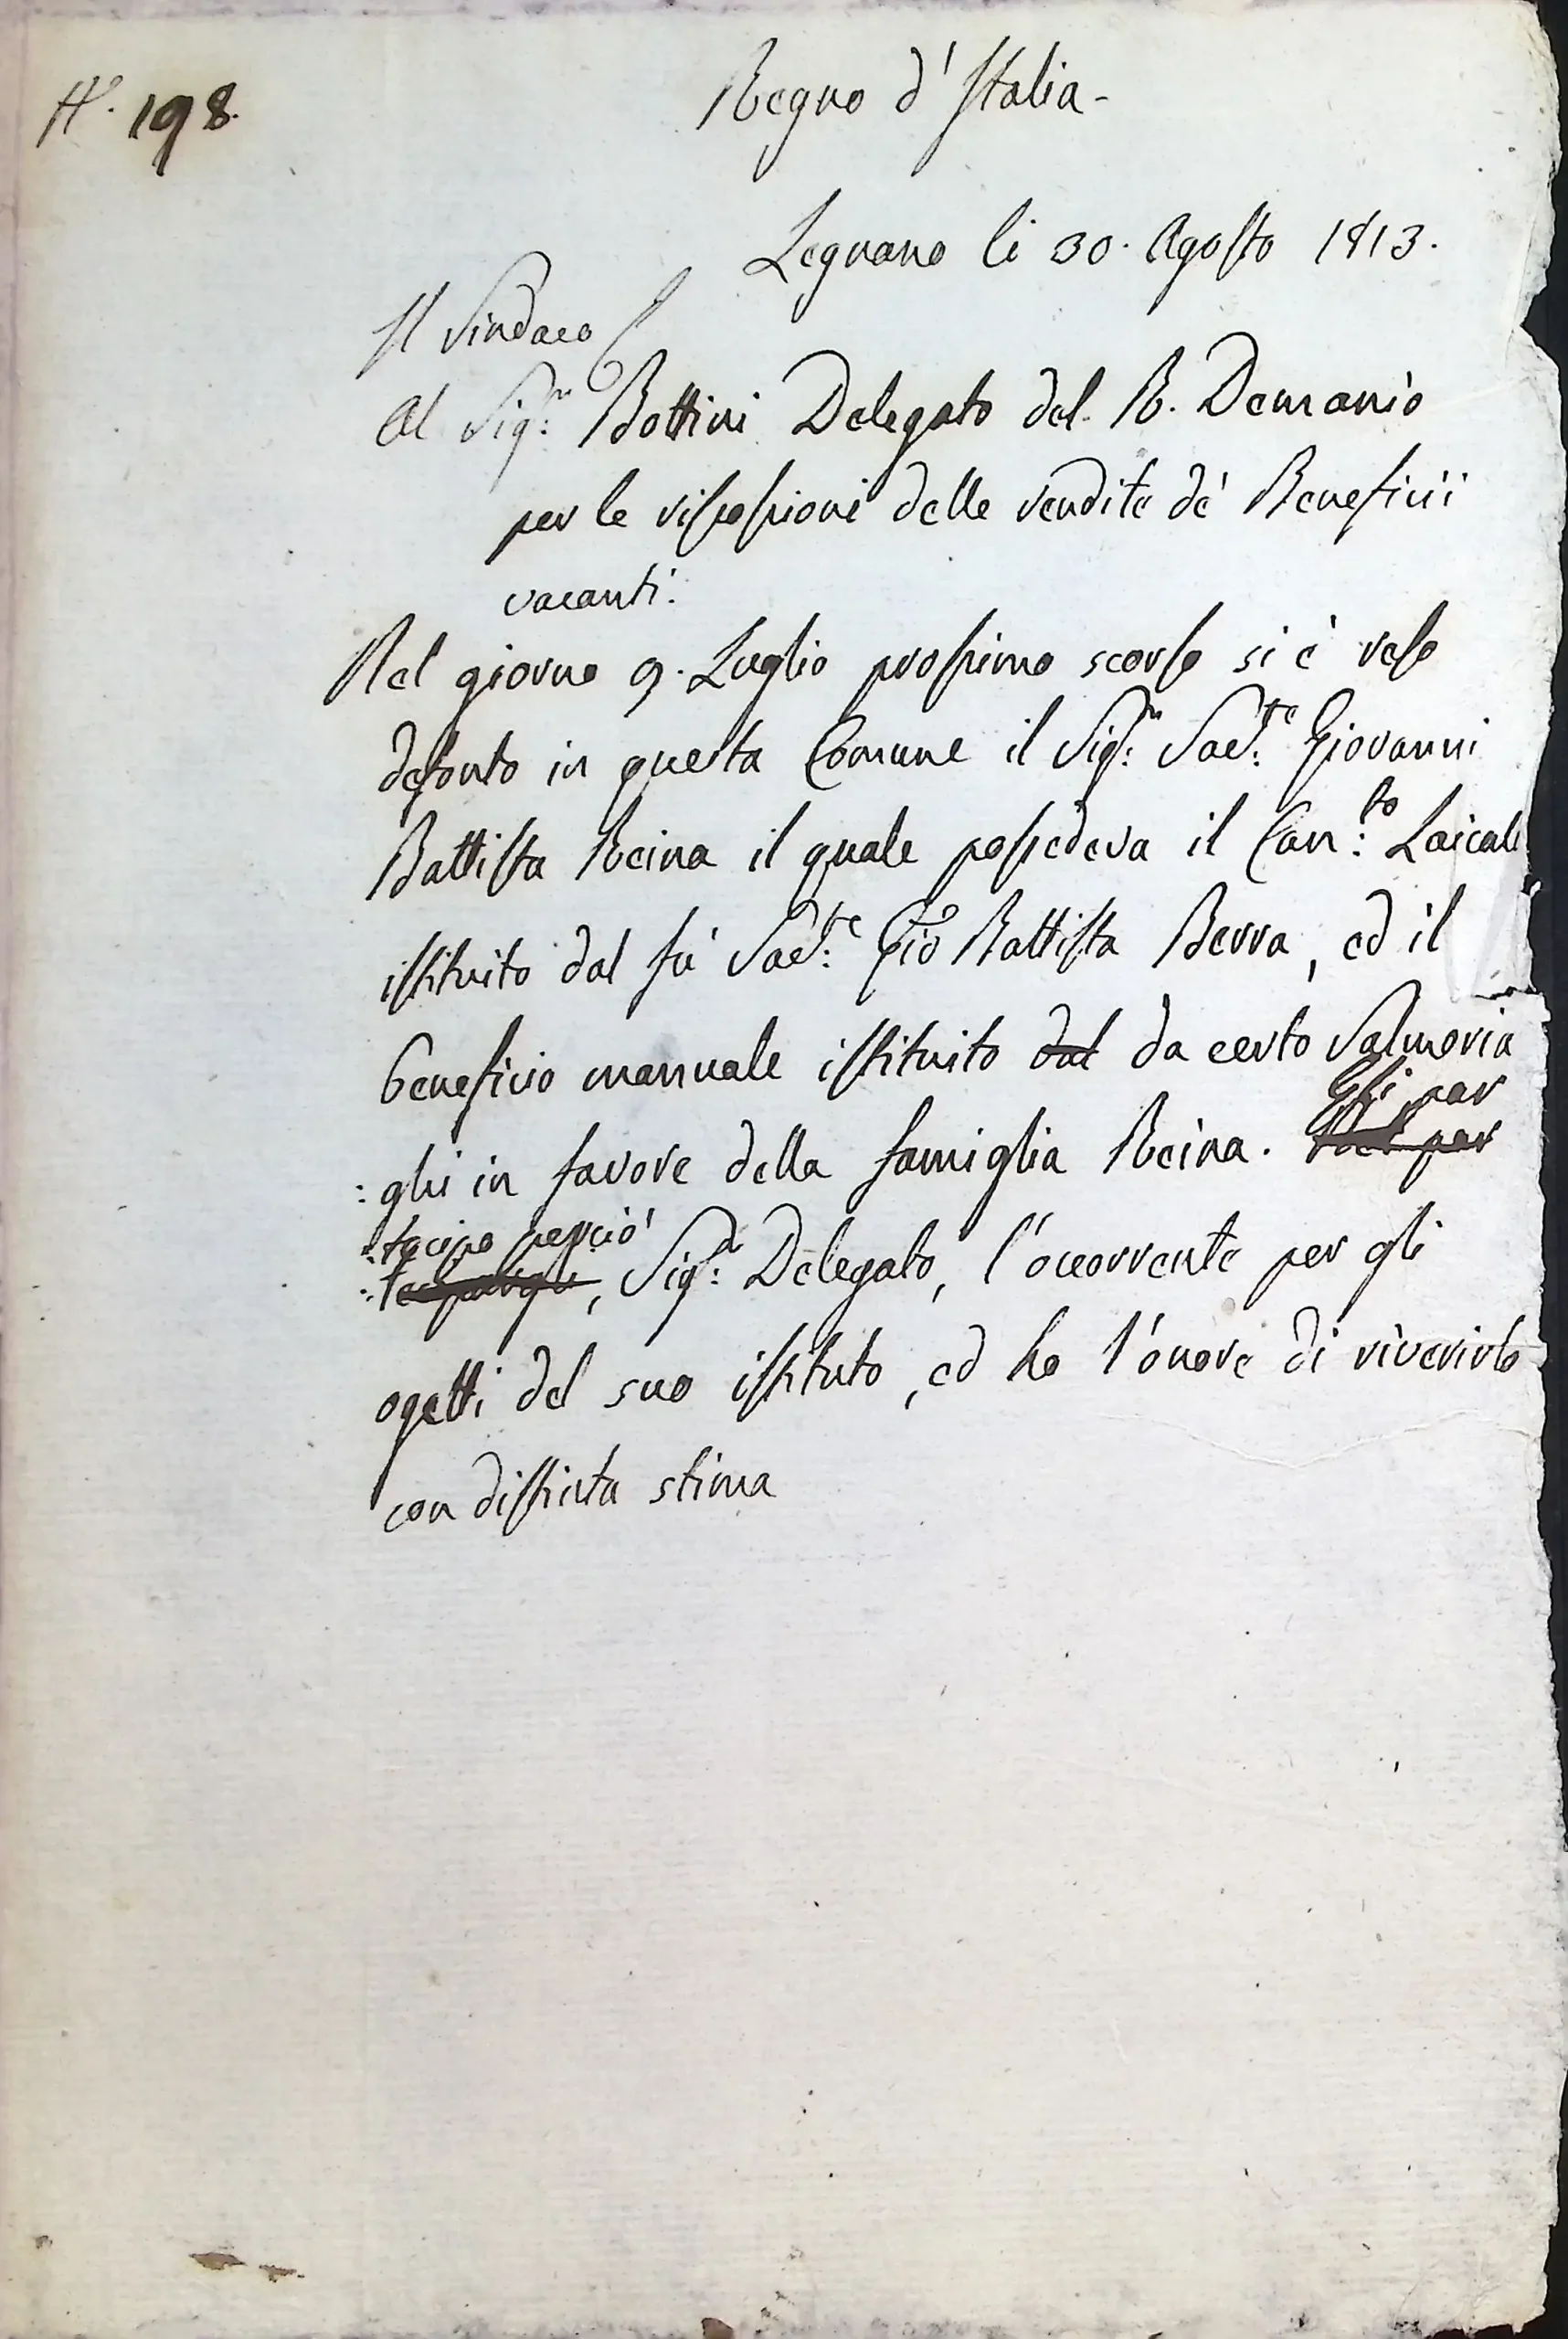 N.° 198.
Regno d'Italia-
Legnano li 30. Agosto 1813.
Il Sindaco
Al Sig.r Bottini Delegato del R. Demanio
per le riscossioni delle rendite de' Beneficii
vacanti.
Nel giorno 9. Luglio prossimo scorso si è reso
defonto in questa Comune il Sig.r Sacd.te Giovanni
Battista Reina il quale possedeva il Can.to Laicale
istituito dal fù Sacd.te Gio Battista Berra, ed il
beneficio manuale istituito dal da certo Salmoria
Gli par
:ghi in favore della famiglia Reina. per
:tecipo perciò
, Sig.r Delegato, l'occorrente per gli
ogetti del suo istituto, ed ho l'onore di riverirlo
con distinta stima